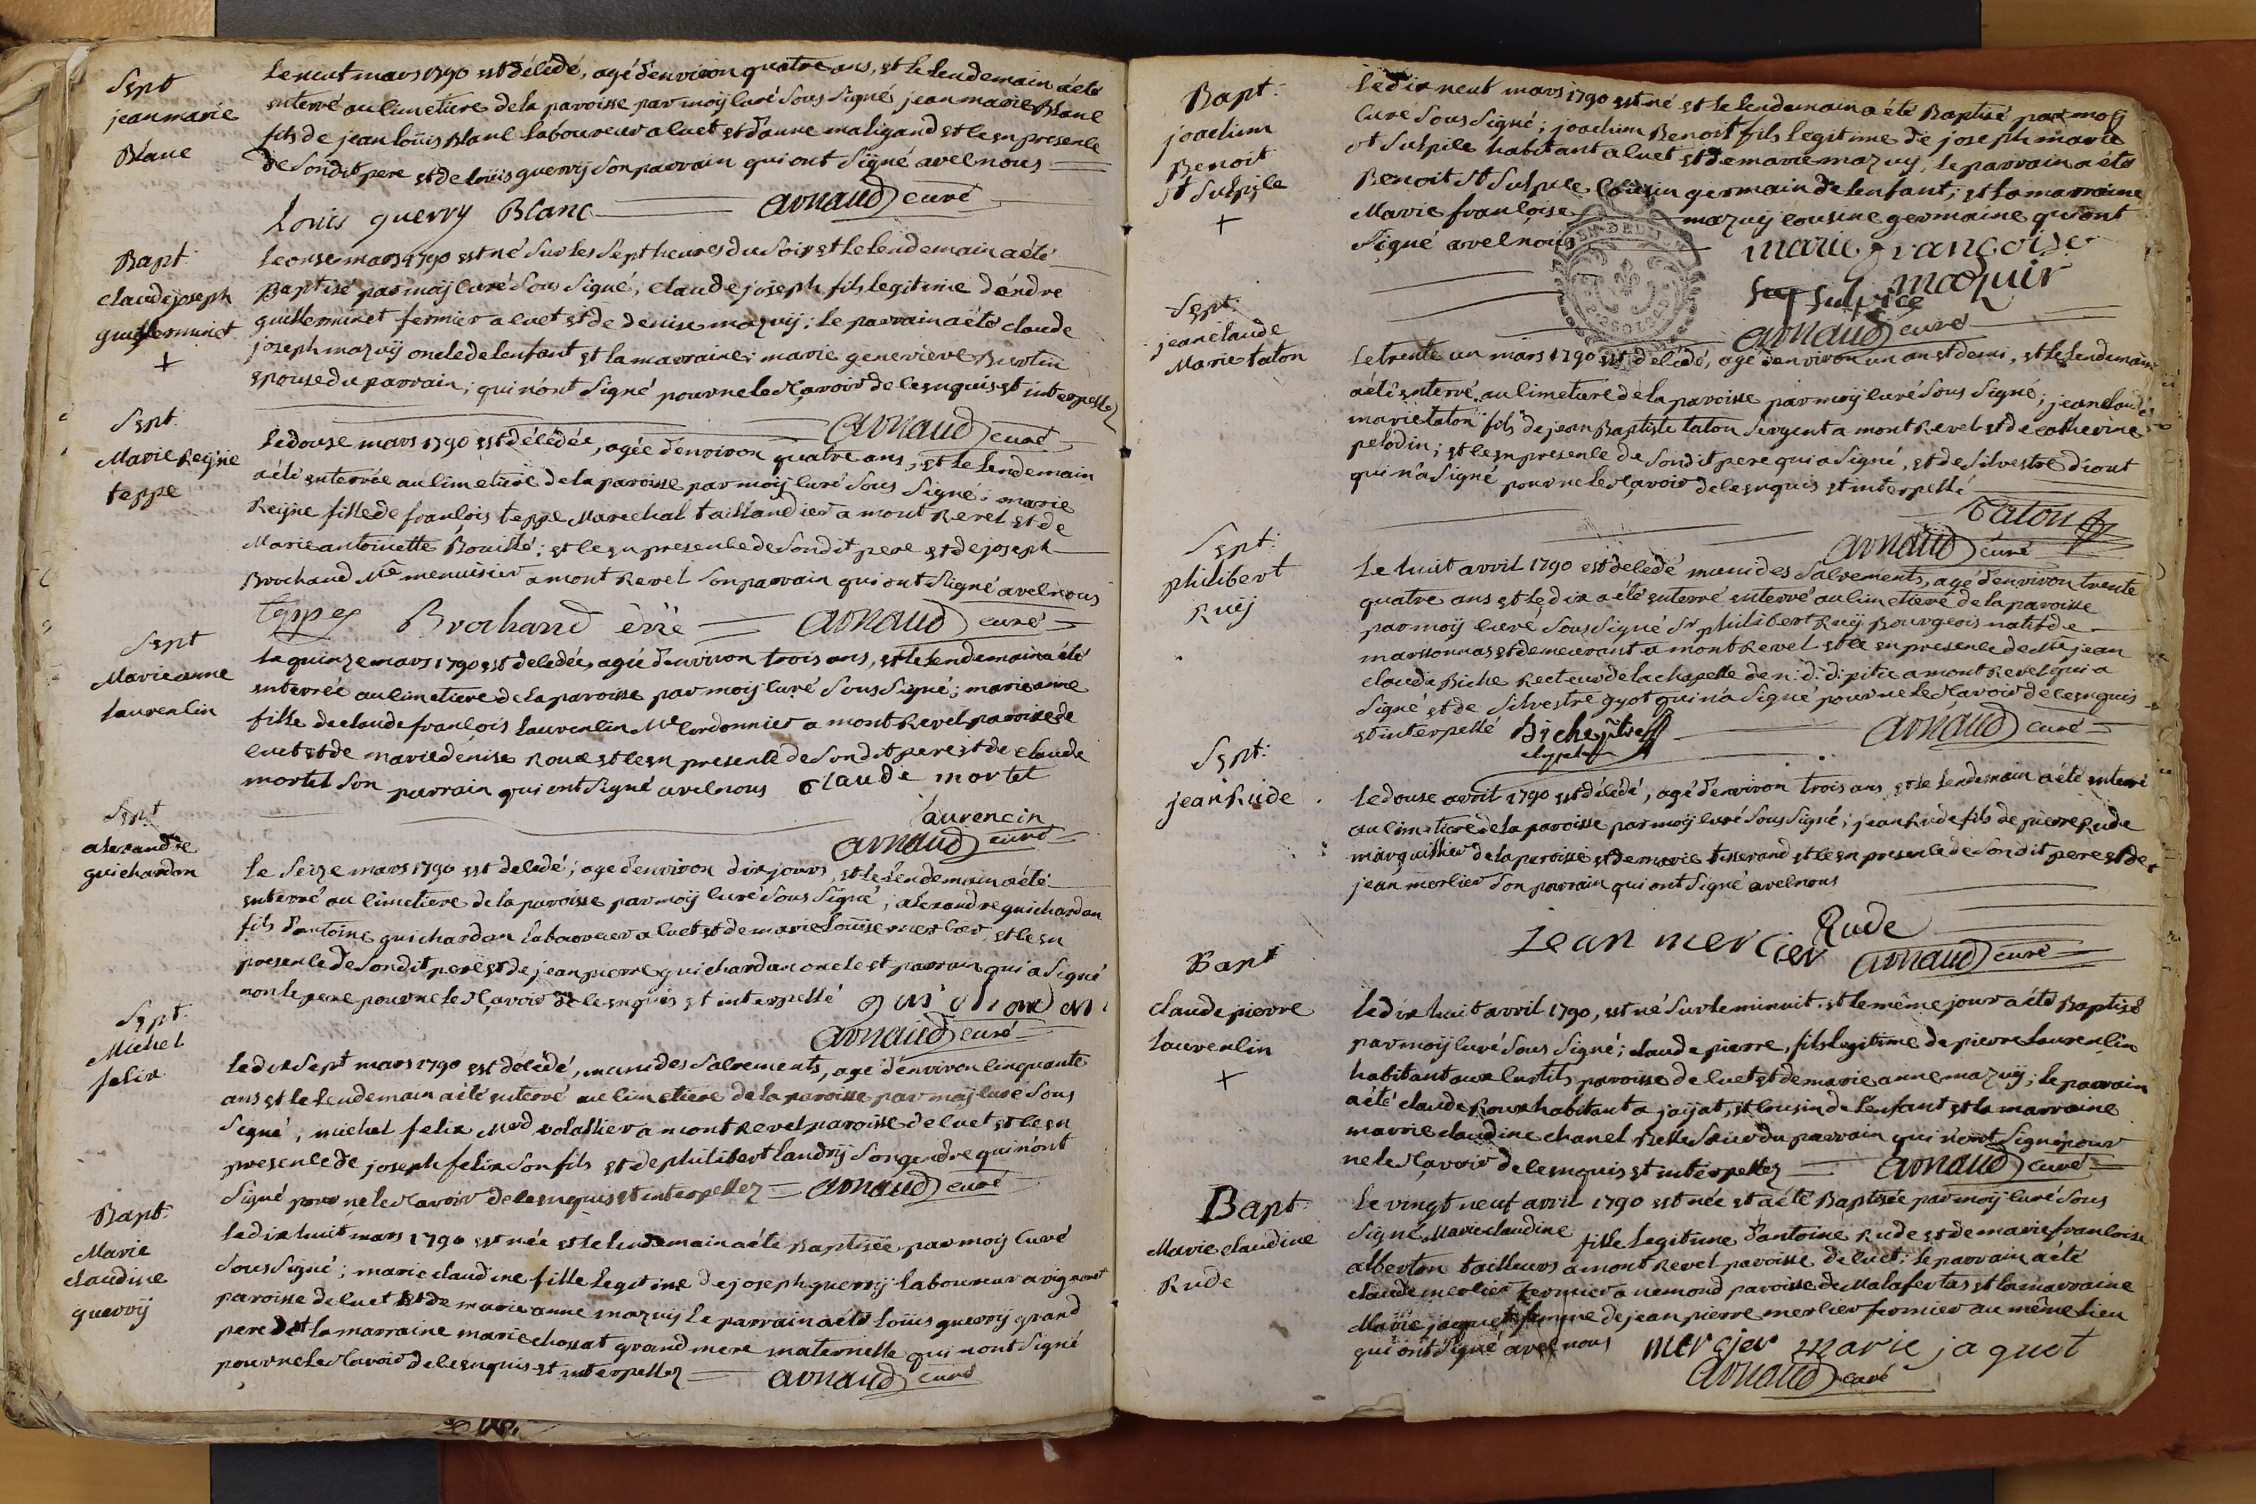 Sept
jean marie
Blanc
le neuf mars 1790 est décédé, agé d'environ quatre ans, et le lendemain a été
enterré au cimetiere de la paroisse par moÿ curé sous signé jean marie Blanc
fils de jean loüis Blanc laboureur a cuet et d'anne maligand et ce en presence
de son dit pere et de loüis guerry son parrain qui ont signé avec nous
Louis guerry Blanc arnaud curé
Bapt:
claude joseph
guillerminet
+
le onse mars 1790 est né sur les sept heures du soir et le lendemain a été
Baptisé par moÿ curé sous signé, claude joseph fils legitime d'andre
guillerminet fermier a cuet et de denise mazuÿ; le parrain a été claude
joseph mazuÿ oncle de l'enfant et la marraine marie genevieve Burtin
epouse du parrain; qui n'ont signé pour ne le sçavoir de ce enquis et interpellez
arnaud curé
Sept:
Marie Reÿne
teppe
le douse mars 1790 est décédée, agée d'environ quatre ans, et le lendemain
a été enterrée au cimetiere de la paroisse par moÿ curé sous signé; marie
Reÿne fille de françois teppe Marechal taillandier a mont Revel et de
Marie antoinette Bouillé; et ce en presence de son dit pere et de joseph
Brochand Me menuisier a mont Revel son parrain qui ont signé avec nous
teppe Brochand arnaud curé
Sept
Marie anne
laurencin
le quinze mars 1790 est décédée, agée d'environ trois ans, et le lendemain a été
enterrée au cimetiere de la paroisse par moÿ curé sous signé; marie anne
fille de claude françois laurencin Me cordonnier a mont Revel paroisse de
cuet et de marie dénise Roux et ce en presence de son dit pere et de claude
mortel son parrain qui ont signé avec nous claude mortel
laurencin
arnaud curé
Sept
alexandre
guichardon
le seize mars 1790 est décédé; agé d'environ dix jours, et le lendemain a été
enterré au cimetiere de la paroisse par moÿ curé sous signé; alexandre guichardon
fils d'antoine guichardon laboureur a cuet et de marie loüise mercier, et ce en
presence de son dit pere et de jean pierre guichardan oncle et parrain qui a signé
non le pere pour ne le sçavoir de ce enquis et interpellé
arnaud curé
Sept:
Michel
felix
le dix sept mars 1790 est décédé, muni des sacrements, agé d'environ cinquante
ans et le lendemain a été enterré au cimetiere de la paroisse par moÿ curé sous
signé; michel felix Mard volallier a mont Revel paroisse de cuet et ce en
presence de joseph felix son fils et de philibert landrÿ son gendre qui n'ont
signé pour ne le sçavoir de ce enquis et interpellez arnaud curé
Bapt:
Marie
claudine
guerrÿ
le dix huit mars 1790 est née et le lendemain a été Baptisée par moÿ curé
sous signé; marie claudine fille legitime de joseph guerrÿ laboureur a vignouet
paroisse de cuet et de marie anne mazuÿ le parrain a été loüis guerrÿ grand
pere et la marraine marie chossat grand mere maternelle qui n'ont signé
pour ne le sçavoir de ce enquis et interpellez arnaud curé
Bapt:
joachim
Benoit
st Sulpice
+
le dix neuf mars 1790 est né et le lendemain a été Baptisé par moÿ
curé sous signé; joachim Benoit fils legitime de joseph marie
st Sulpice habitant a cuet et de marie mazuÿ, le parrain a été
Benoit st Sulpice cousin germain de l'enfant; et la marraine
Marie françoise mazuÿ cousine germaine qui ont
signé avec nous marie françoise
mazuir
sulpice
arnaud curé
Sept:
jean claude
Marie taton
le trente un mars 1790 est décédé, agé d'environ un an et demi, et le lendemain
a été enterré au cimetiere de la paroisse par moÿ curé sous signé; jean claude
marie taton fils de jean Baptiste taton sergent a mont Revel et de catherine
pelodin; et ce en presence de son dit pere qui a signé, et de silvestre diout
qui n'a signé pour ne le sçavoir de ce enquis et interpellé
Taton
arnaud curé
Sept:
philibert
Ruÿ
Le huit avril 1790 est décédé muni des sacrements, agé d'environ trente
quatre ans et le dix a été enterré enterré au cimetiere de la paroisse
par moÿ curé sous signé Sr philibert Ruÿ Bourgeois natif de
marsonnas et demeurant a mont Revel et ce en presence de Mre jean
claude Biche Recteur de la chapelle de n: d: d: pitié a mont Revel qui a
signé et de silvestre gyot qui n'a signé pour ne le sçavoir de ce enquis
et interpellé Biche ptre arnaud curé
Sept:
jean Rude
le douse avril 1790 est décédé, agé d'environ trois ans et le lendemain a été enterré
au cimetiere de la paroisse par moÿ curé sous signé; jean Rude fils de pierre Rude
marguillier de la paroisse et de marie tisserand et ce en presence de son dit pere et de
jean mercier son parrain qui ont signé avec nous
Rude
jean mercier arnaud curé
Bapt
claude pierre
laurencin
+
le dix huit avril 1790, est né sur le minuit et le même jour a été Baptisé
par moÿ curé sous signé; claude pierre, fils legitime de pierre laurencin
habitant aux curtils paroisse de cuet et de marie anne mazuÿ; le parrain
a été claude Roux habitant a jaÿat, et cousin de l'enfant et la marraine
marie claudine chanel Belle sœur du parrain qui n'ont signé pour
ne le sçavoir de ce enquis et interpellez arnaud curé
Bapt:
Marie claudine
Rude
le vingt neuf avril 1790 est née et a été Baptisée par moÿ curé sous
signé Marie claudine fille legitime d'antoine Rude et de marie françoise
alberton tailleurs a mont Revel paroisse de cuet; le parrain a été
claude mercier fermier a nemond paroisse de Malafertas et la marraine
Marie jaquet femme de jean pierre mercier fermier au même lieu
qui ont signé avec nous mercier marie jaquet
arnaud curé